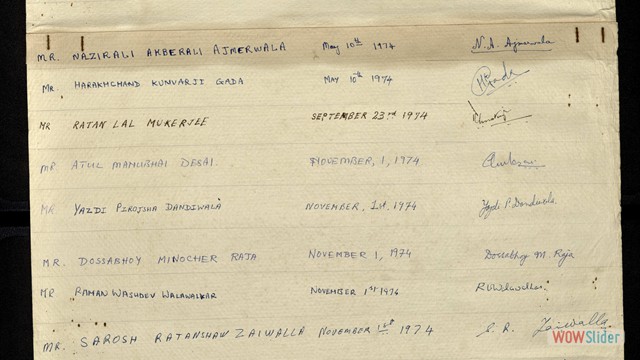 MR. NAZIRALI AKBERALI AJMERWALA May 10th 1974 N.A. Ajmerwala
MR. HARAKHCHAND KUNVARJI GADA MAY 10th 1974
MR RATAN LAL MUKERJEE SEPTEMBER 23rd 1974
MR ATUL MANUBHAI DESAI. NOVEMBER, 1, 1974
MR YAZDI PIROJSHA DANDIWALA NOVEMBER, 1st 1974 Yazdi P. Dandiwala.
MR. DOSSABHOY MINOCHER RAJA NOVEMBER 1, 1974 Dossabhoy M. Raja
MR RAMAN WASUDEV WALAWALKAR NOVEMBER 1st 1974 R.W. Walawalkar
MR. SAROSH RATANSHAW ZAIWALLA NOVEMBER 1st 1974 S. R. Zaiwalla
WOWSlider